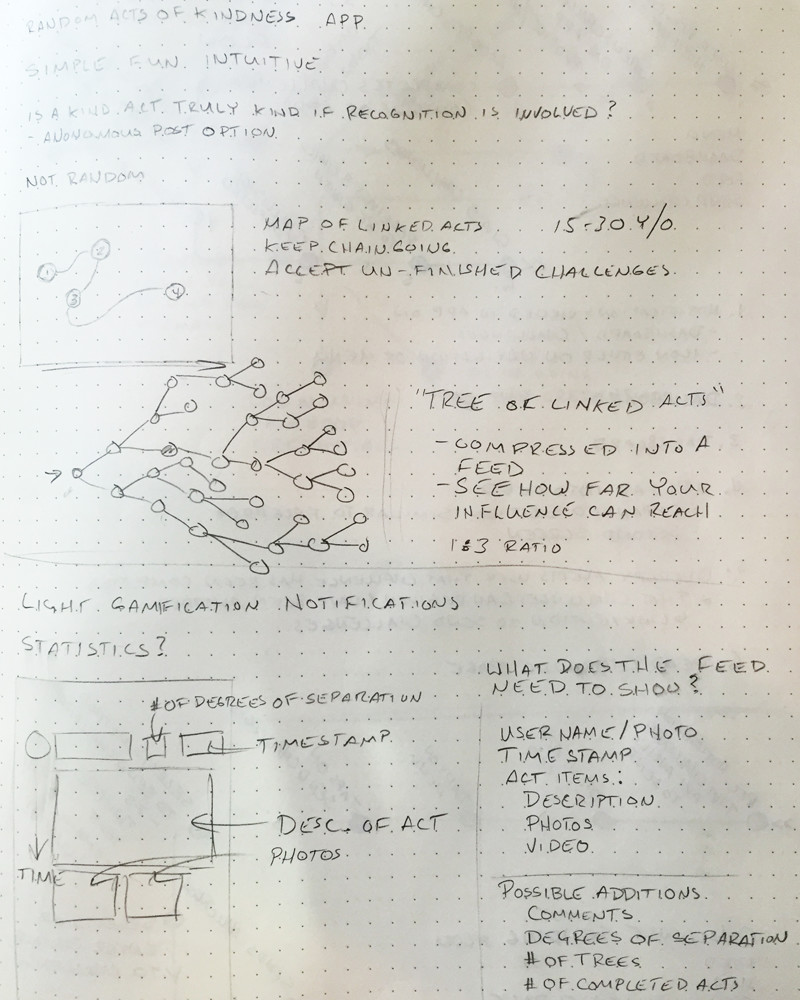 RANDOM ACTS OF KINDNESS APP
SIMPLE FUN INTUITIVE
IS A KIND ACT TRULY KIND IF RECOGNITION IS INVOLVED?
- ANONOMOUS POST OPTION
NOT RANDOM
1
2
3
4
MAP OF LINKED ACTS
15-30 Y/O
KEEP CHAIN GOING
ACCEPT UN-FINISHED CHALLENGES
"TREE OF LINKED ACTS"
- COMPRESSED INTO A
FEED
- SEE HOW FAR YOUR
INFLUENCE CAN REACH
1:3 RATIO
LIGHT GAMIFICATION NOTIFICATIONS
STATISTICS?
# OF DEGREES OF SEPARATION
TIMESTAMP
DESC. OF ACT
PHOTOS
TIME
WHAT DOES THE FEED
NEED TO SHOW?
USER NAME/PHOTO
TIMESTAMP
ACT ITEMS:
DESCRIPTION
PHOTOS
VIDEO
POSSIBLE ADDITIONS
COMMENTS
DEGREES OF SEPARATION
# OF TREES
# OF COMPLETED ACTS